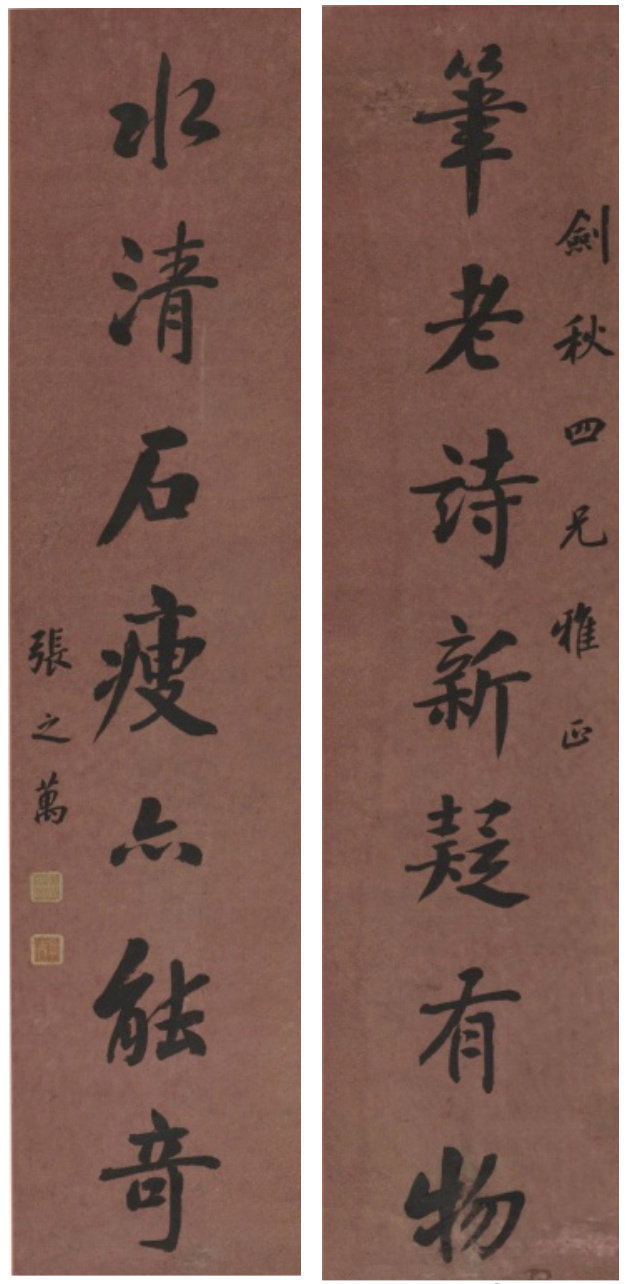 劍秋四兄雅正
筆老詩新疑有物
水清石瘦亦能奇
張之萬